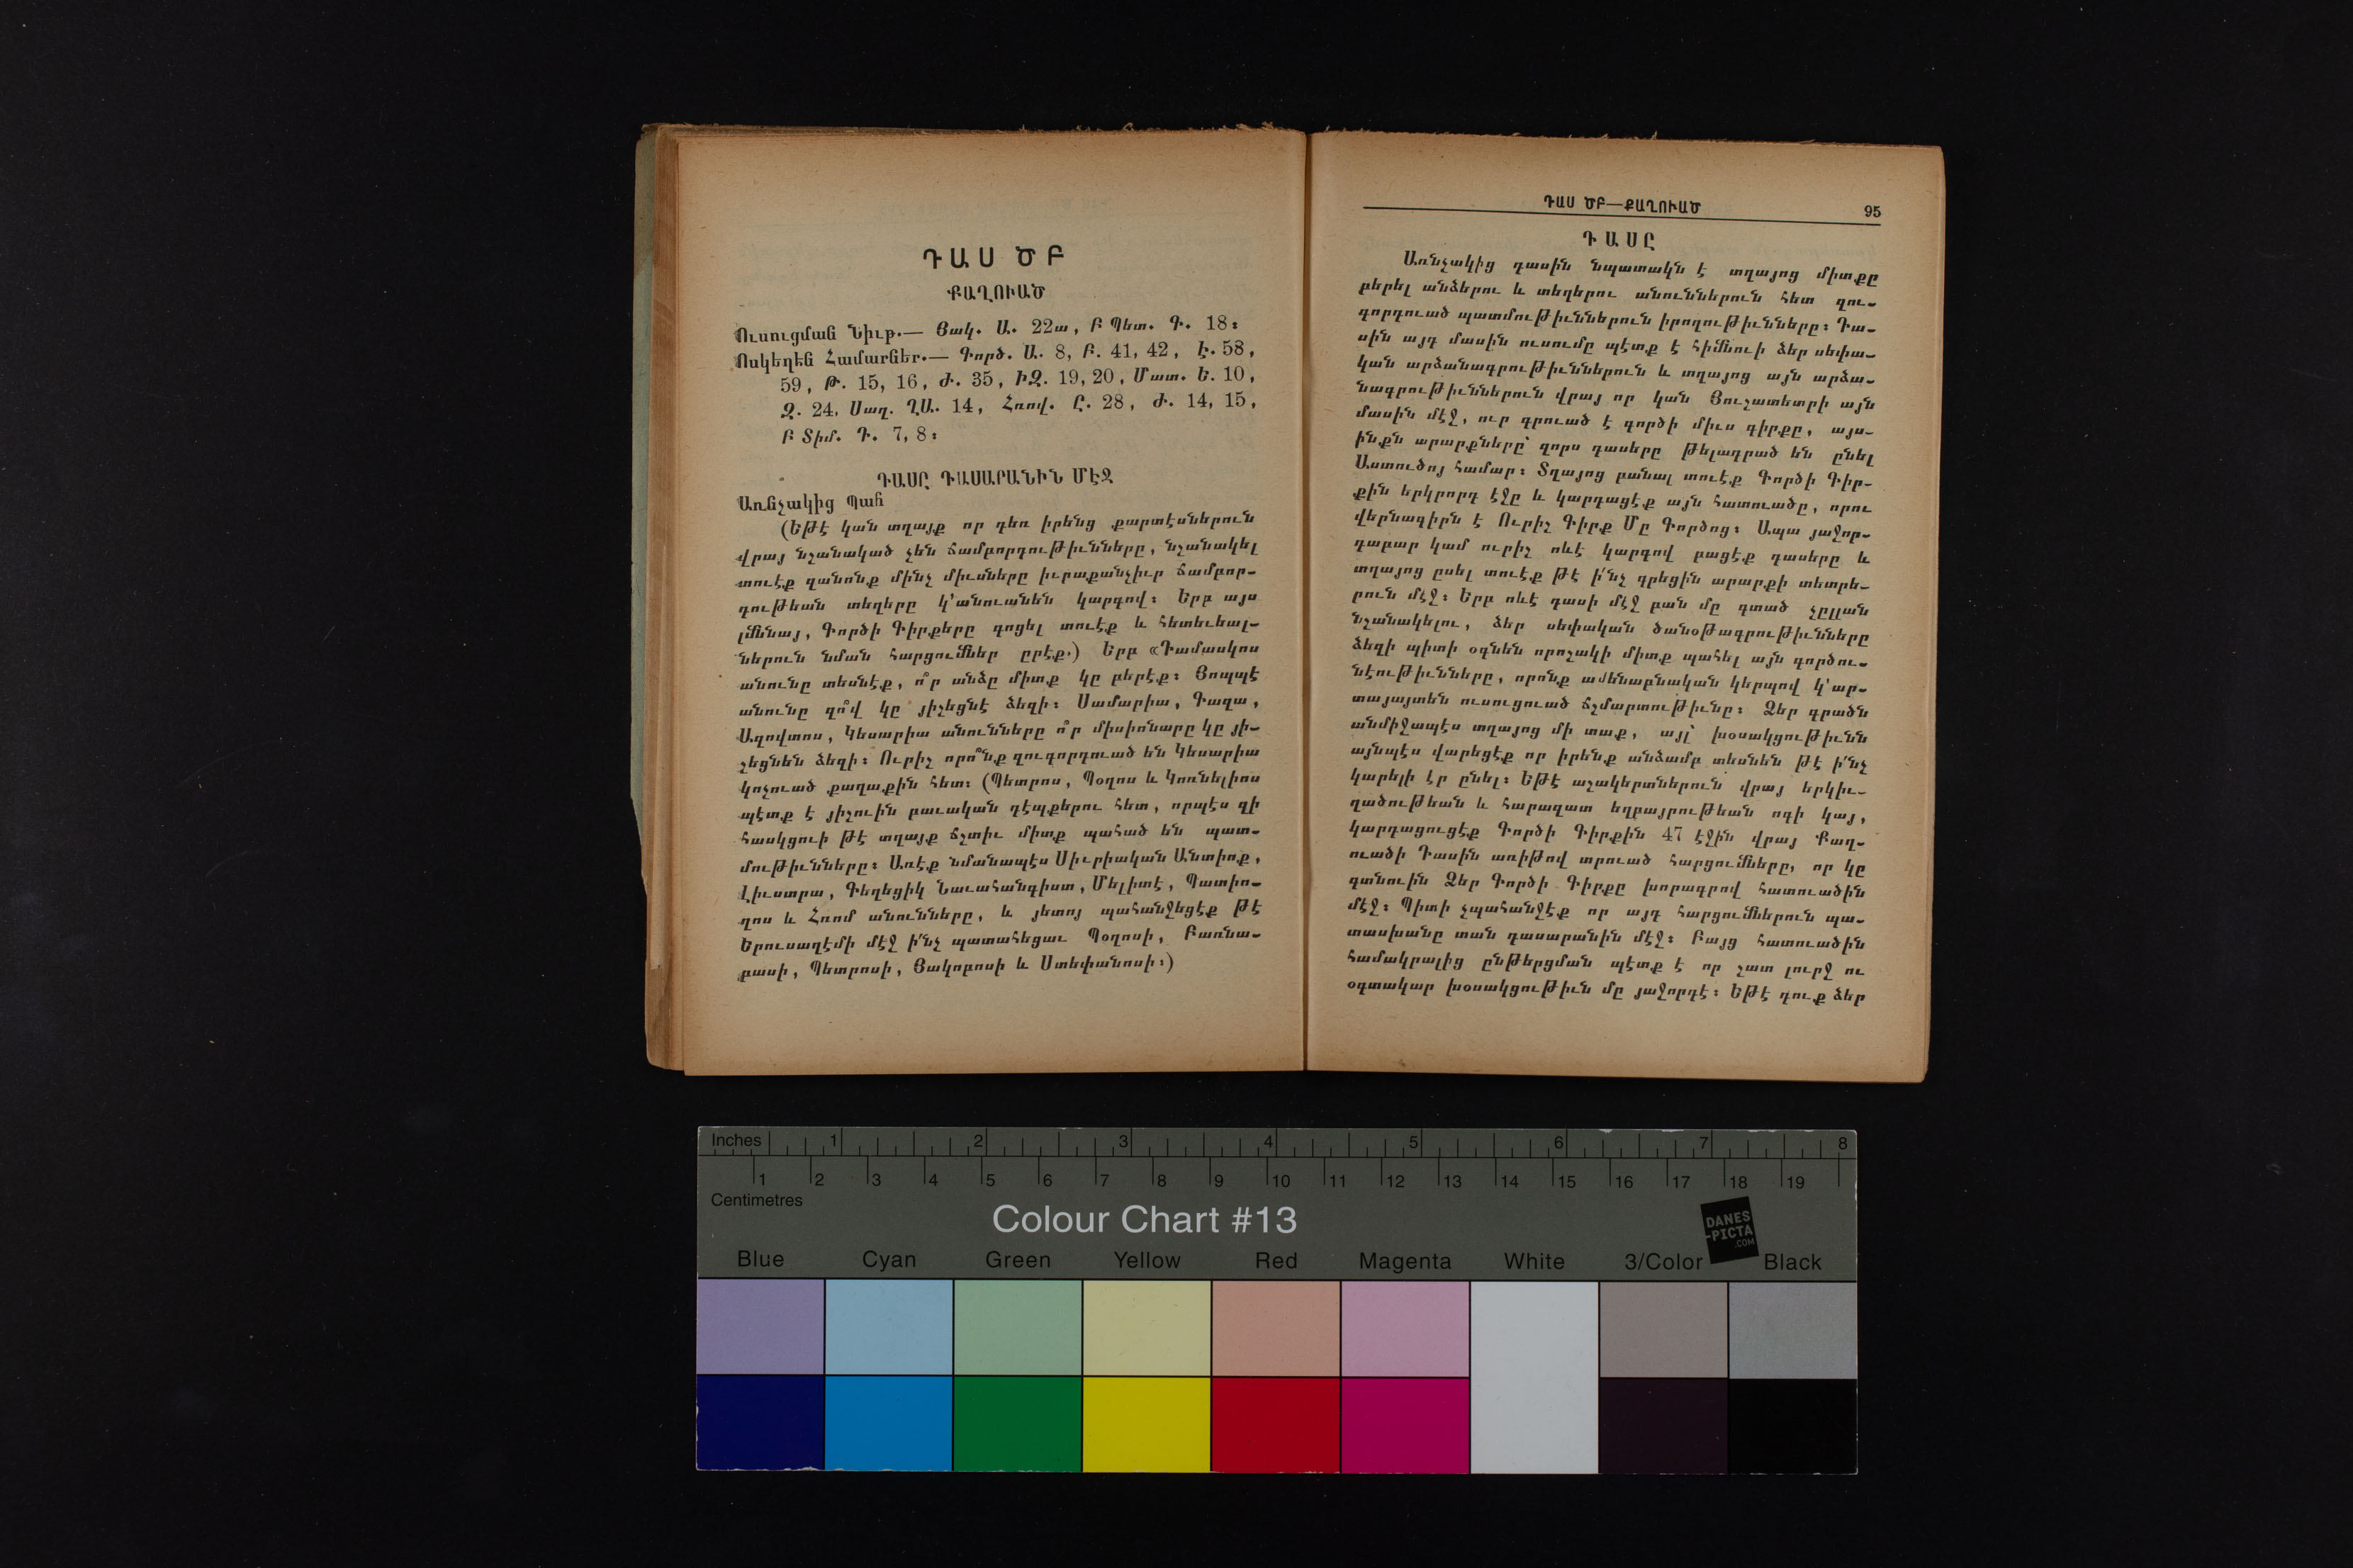 ԴԱՍ ԾԲ
ՔԱՂՈՒԱԾ
Ուսուցման Նիւթ.— Յակ. Ա. 22ա, Բ Պետ. Գ. 18։
Ոսկեղեն Համարներ.— Գործ. Ա. 8, Բ. 41, 42, Է. 58,
59, Թ. 15, 16, Ժ. 35, ԻԶ. 19, 20, Մատ. Ե. 10,
Զ. 24, Սաղ. ՂԱ. 14, Հռով. Ը. 28, Ժ. 14, 15,
Բ Տիմ. Դ. 7, 8։
ԴԱՍԸ ԴԱՍԱՐԱՆԻՆ ՄԷՋ
Առնչակից Պահ
(Եթէ կան տղայք որ դեռ իրենց քարտէսներուն
վրայ նշանակած չեն ճամբորդութիւնները, նշանակել
տուէք զանոնք մինչ միւսները իւրաքանչիւր ճամբոր-
դութեան տեղերը կ՚անուանեն կարգով։ Երբ այս
լմննայ, Գործի Գիրքերը գոցել տուէք և հետեւեալ-
ներուն նման հարցումներ ըրէք.) Երբ «Դամասկոս
անունը տեսնէք, ո՞ր անձը միտք կը բերէք։ Յոպպէ
անունը զո՞վ կը յիշեցնէ ձեզի։ Սամարիա, Գազա,
Ազովտոս, Կեսարիա անունները ո՞ր միսիոնարը կը յի-
շեցնեն ձեզի։ Ուրիշ որո՞նք զուգորդուած են Կեսարիա
կոչուած քաղաքին հետ։ (Պետրոս, Պօղոս և Կոռնելիոս
պէտք է յիշուին բաւական դէպքերու հետ, որպէս զի
հասկցուի թէ տղայք ճշտիւ միտք պահած են պատ-
մութիւնները։ Առէք նմանապէս Սիւրիական Անտիոք,
Լիւստրա, Գեղեցիկ Նաւահանգիստ, Մելիտէ, Պատիո-
ղոս և Հռոմ անունները, և յետոյ պահանջեցէք թէ
Երուսաղէմի մէջ ի՛նչ պատահեցաւ Պօղոսի, Բառնա-
բասի, Պետրոսի, Յակոբոսի և Ստեփանոսի։)
ԴԱՍ ԾԲ—ՔԱՂՈՒԱԾ 95
ԴԱՍԸ
Առնչակից դասին նպատակն է տղայոց միտքը
բերել անձերու և տեղերու անուններուն հետ զու-
գորդուած պատմութիւններուն իրողութիւնները։ Դա-
սին այդ մասին ուսումը պէտք է հիմնուի ձեր սեփա-
կան արձանագրութիւններուն և տղայոց այն արձա-
նագրութիւններուն վրայ որ կան Յուշատետրի այն
մասին մէջ, ուր գրուած է գործի միւս գիրքը, այս-
ինքն արարքները՝ զորս դասերը թելադրած են ընել
Աստուծոյ համար։ Տղայոց բանալ տուէք Գործի Գիր-
քին երկրորդ էջը և կարդացէք այն հատուածը, որու
վերնագիրն է Ուրիշ Գիրք Մը Գործոց։ Ապա յաջոր-
դաբար կամ ուրիշ ոևէ կարգով բացէք դասերը և
տղայոց ըսել տուէք թէ ի՛նչ գրեցին արարքի տետրե-
րուն մէջ։ Երբ ոևէ դասի մէջ բան մը գտած չըլլան
նշանակելու, ձեր սեփական ծանօթագրութիւնները
ձեզի պիտի օգնեն որոշակի միտք պահել այն գործու-
նէութիւնները, որոնք ամենաբնական կերպով կ՚ար-
տայայտեն ուսուցուած ճշմարտութիւնը։ Ձեր գրածն
անմիջապէս տղայոց մի տաք, այլ՝ խօսակցութիւնն
այնպէս վարեցէք որ իրենք անձամբ տեսնեն թէ ի՛նչ
կարելի էր ընել։ Եթէ աշակերտներուն վրայ երկիւ-
ղածութեան և հարազատ եղբայրութեան ոգի կայ,
կարդացուցէք Գործի Գիրքին 47 էջին վրայ Քաղ-
ուածի Դասին առիթով տրուած հարցումները, որ կը
գտնուին Ձեր Գործի Գիրքը խորագրով հատուածին
մէջ։ Պիտի չպահանջէք որ այդ հարցումներուն պա-
տասխանը տան դասարանին մէջ։ Բայց հատուածին
համակրալից ընթերցման պէտք է որ շատ լուրջ ու
օգտակար խօսակցութիւն մը յաջորդէ։ Եթէ դուք ձեր
Inches 1 2 3 4 5 6 7 8
1 2 3 4 5 6 7 8 9 10 11 12 13 14 15 16 17 18 19
Centimetres
Colour Chart #13
DANES
-PICTA
.COM
Blue Cyan Green Yellow Red Magenta White 3/Color Black